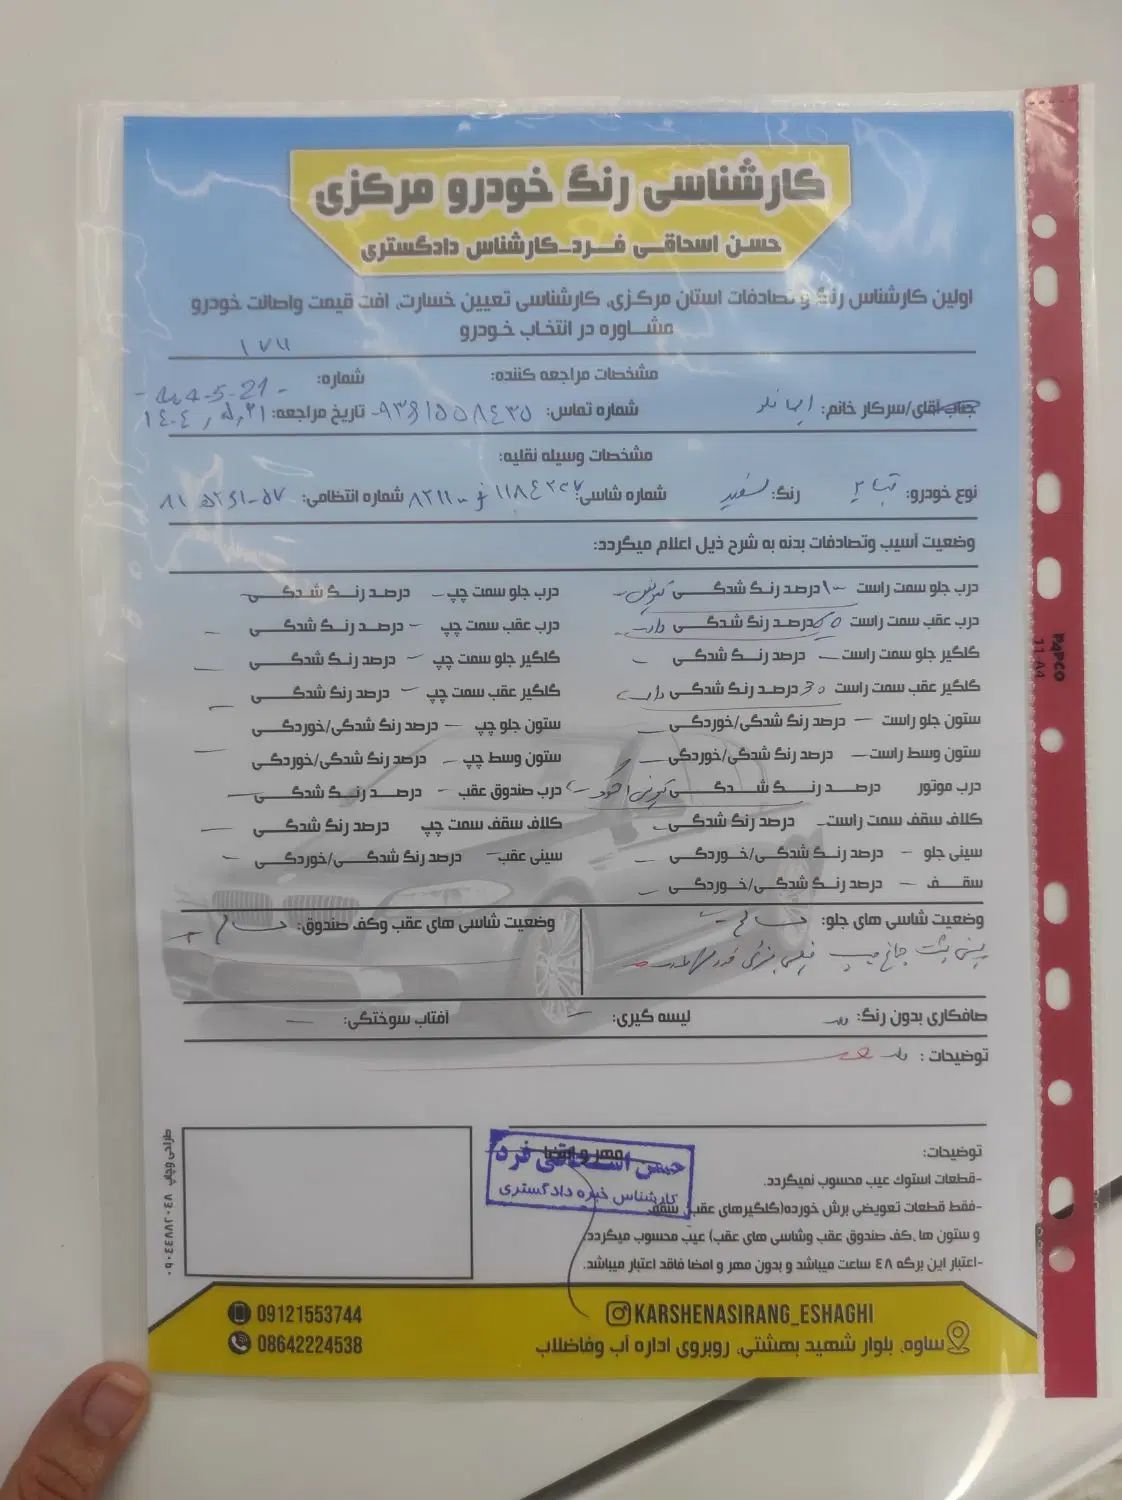 کارشناسی رنگ خودرو مرکزی
حسن اسحاقی فرد-کارشناس دادگستری
اولین کارشناس رنگ و تصادفات استان مرکزی، کارشناسی تعیین خسارت، افت قیمت واصالت خودرو
مشاوره در انتخاب خودرو
مشخصات مراجعه کننده: شماره:
جناب آقای/سرکار خانم: شماره تماس: تاریخ مراجعه: ۱۴۰۴/۵/۲۱
مشخصات وسیله نقلیه:
نوع خودرو: تیبا ۲ رنگ: سفید شماره شاسی: شماره انتظامی:
وضعیت آسیب وتصادفات بدنه به شرح ذیل اعلام میگردد:
درب جلو سمت راست ۱۰۰ درصد رنگ شدگی تعویض درب جلو سمت چپ - درصد رنگ شدگی
درب عقب سمت راست درصد رنگ شدگی دارد درب عقب سمت چپ - درصد رنگ شدگی -
گلگیر جلو سمت راست - درصد رنگ شدگی - گلگیر جلو سمت چپ - درصد رنگ شدگی -
گلگیر عقب سمت راست ۳۰ درصد رنگ شدگی دارد گلگیر عقب سمت چپ - درصد رنگ شدگی -
ستون جلو راست - درصد رنگ شدگی/خوردگی - ستون جلو چپ - درصد رنگ شدگی/خوردگی
ستون وسط راست - درصد رنگ شدگی/خوردگی - ستون وسط چپ - درصد رنگ شدگی/خوردگی
درب موتور درصد رنگ شدگی درب صندوق عقب - درصد رنگ شدگی -
کلاف سقف سمت راست - درصد رنگ شدگی - کلاف سقف سمت چپ درصد رنگ شدگی -
سینی جلو - درصد رنگ شدگی/خوردگی - سینی عقب - درصد رنگ شدگی/خوردگی -
سقف - درصد رنگ شدگی/خوردگی -
وضعیت شاسی های جلو: سالم وضعیت شاسی های عقب وکف صندوق: سالم
صافکاری بدون رنگ: لیسه گیری: - آفتاب سوختگی: -
توضیحات:
مهر و امضا
حسن اسحاقی فرد
کارشناس خبره دادگستری
توضیحات:
-قطعات استوک عیب محسوب نمیگردد.
-فقط قطعات تعویضی برش خورده(گلگیرهای عقب، سقف
و ستون ها ،کف صندوق عقب وشاسی های عقب) عیب محسوب میگردد.
-اعتبار این برگه ٤٨ ساعت میباشد و بدون مهر و امضا فاقد اعتبار میباشد.
طراحی وچاپ ۰۹۰٤٤٨٨٢۰٤٨
09121553744
08642224538
KARSHENASIRANG_ESHAGHI
ساوه، بلوار شهید بهشتی، روبروی اداره آب وفاضلاب
PAPCO
11 A4